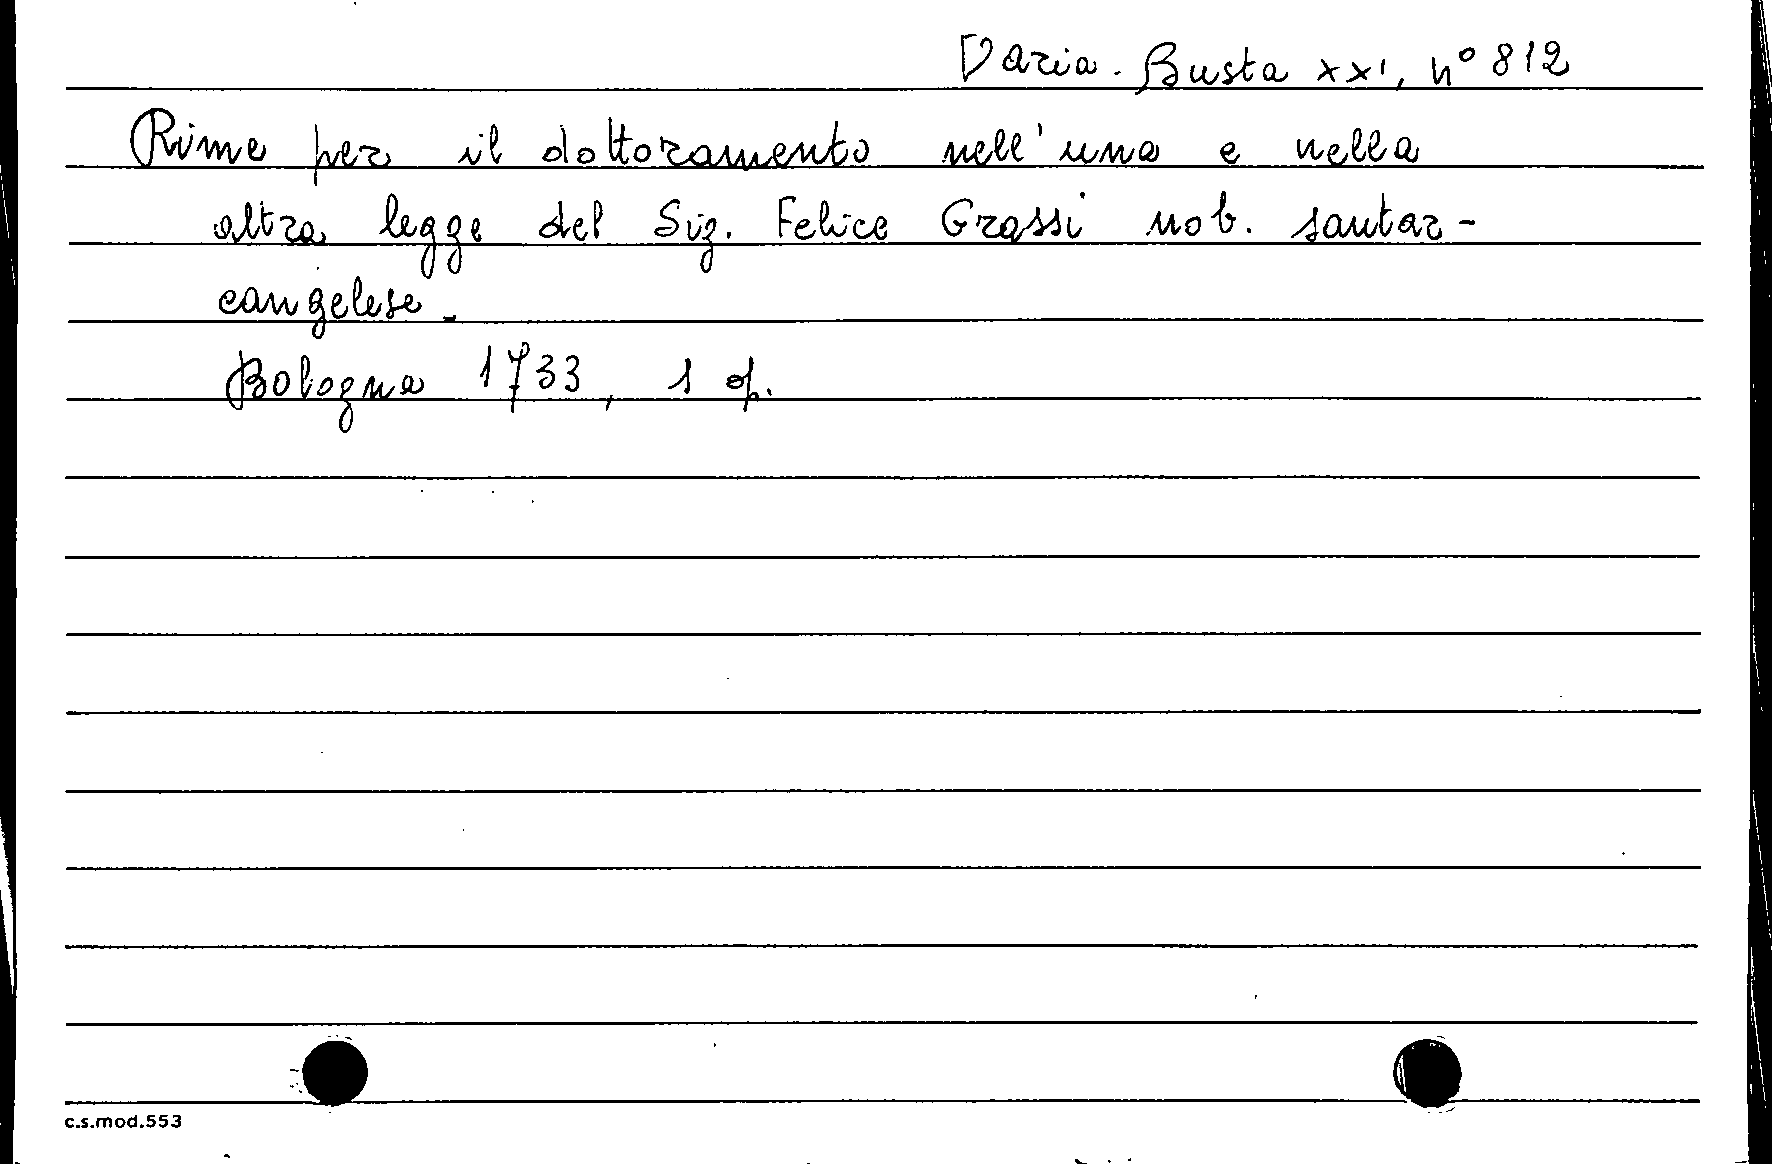 Varia. Busta XXI, n° 812
Rime per il dottoramento nell'una e nella
altra legge del Sig. Felice Grassi nob. santar-
cangelese.
Bologna 1733, 1 op.
c.s.mod.553